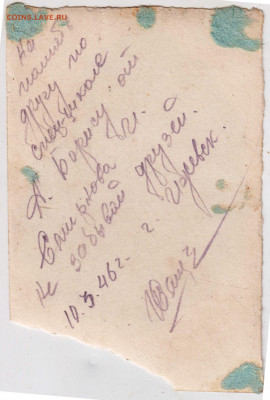 COINS.LAVE.RU
На
память
другу по
спецшколе
Борису
Смирнова
Не забывай друзей.
10.5.46 г. г. Ижевск.